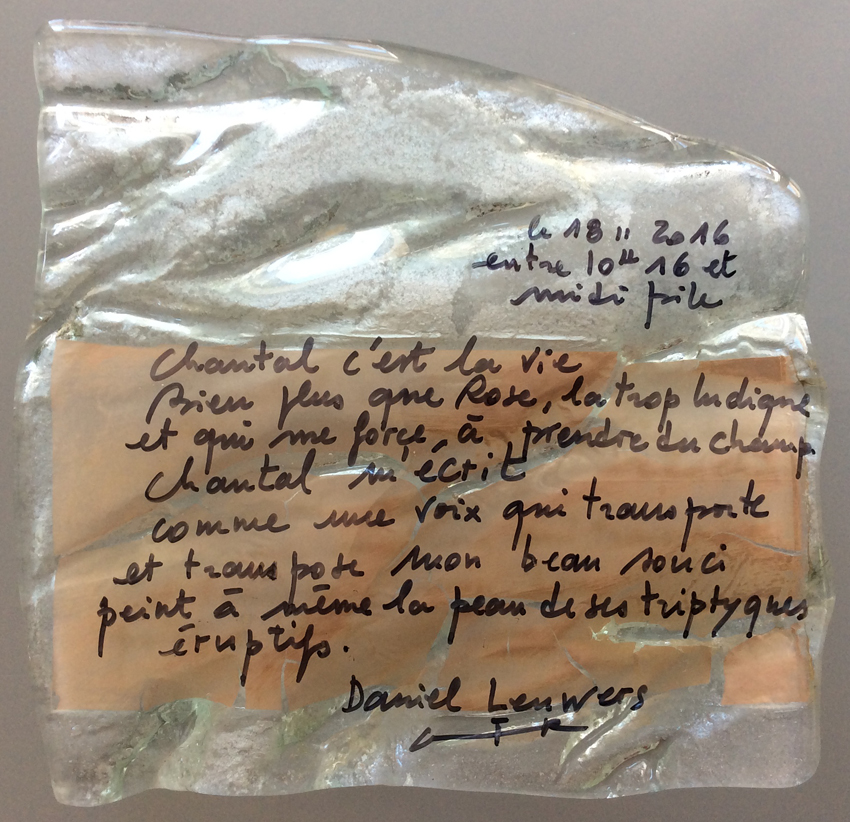 le 18 11 2016
entre 10H 16 et
midi pile
Chantal c'est la vie
Bien plus que Rose, la trop ludique
et qui me force, à prendre du champ
Chantal m'écrit
comme une voix qui transporte
et transpose mon beau souci
peint à même la peau de ses triptyques
éruptifs.
Daniel Leuwers